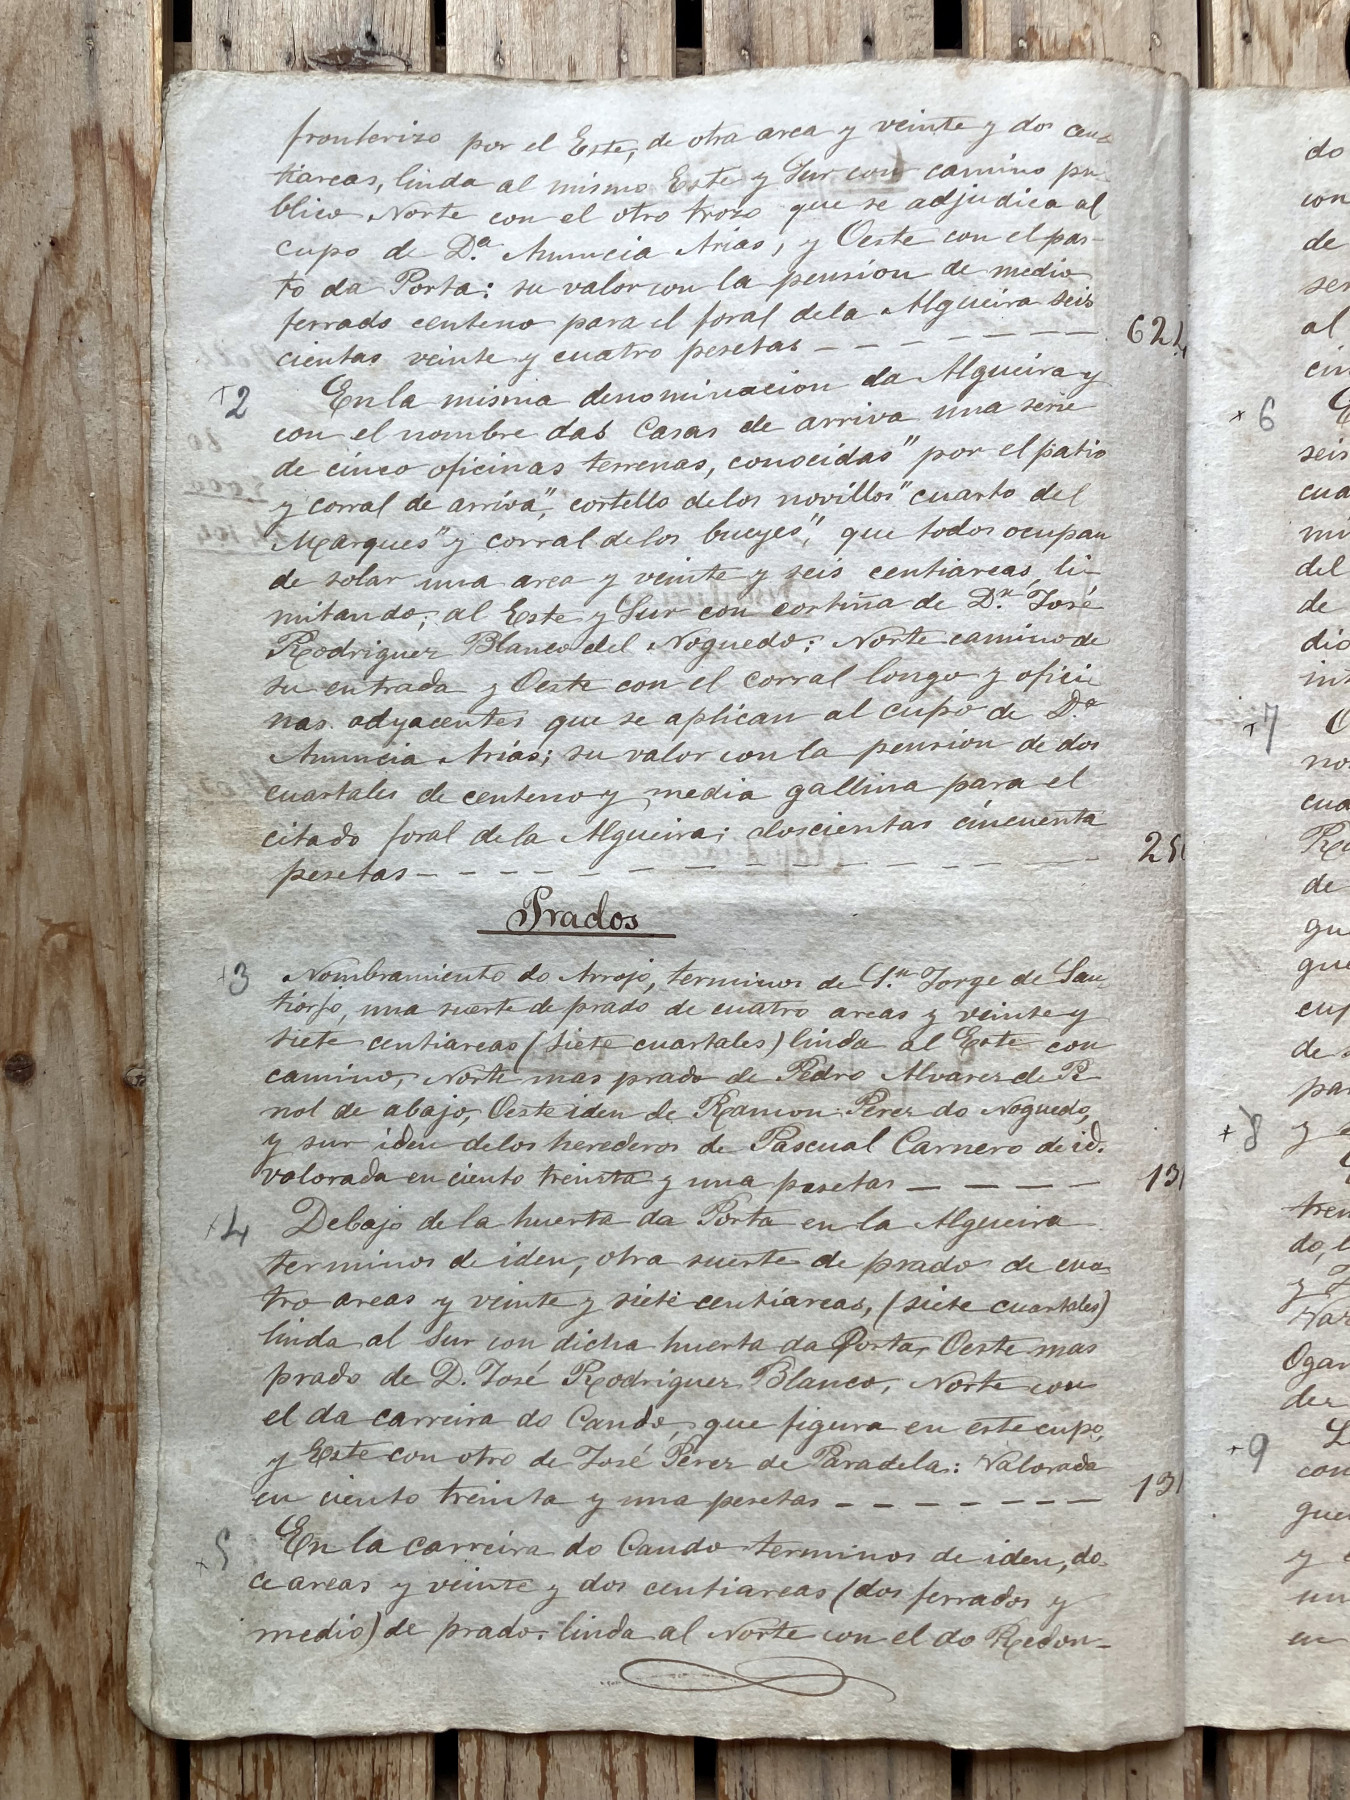 fronterizo por el Este, de otra area y veinte y dos cen-
tiareas, linda al mismo Este y Sur con camino pu-
blico Norte con el otro trozo que se adjudica al
cupo de D.ª Anuncia Arias, y Oeste con el pas-
to da Porta: su valor con la pension de medio
ferrado centeno para el foral dela Algueira seis
cientas veinte y cuatro pesetas — — — — — — — 624
+2 En la misma denominacion da Algueira y
con el nombre das Casas de arriva una serie
de cinco oficinas terrenas, conocidas " por el patio
y corral de arriva", cortello delos novillos "cuarto del
Marques" y corral delos bueyes", que todos ocupan
de solar una area y veinte y seis centiareas, li-
mitando; al Este y Sur con cortiña de D.n José
Rodriguez Blanco del Noguedo: Norte camino de
su entrada y Oeste con el corral longo y ofici-
nas adyacentes que se aplican al cupo de D.ª
Anuncia Arias; su valor con la pension de dos
cuartales de centeno y media gallina para el
citado foral de la Algueira; doscientas cincuenta
pesetas — — — — — — — — — — — — 25
Prados
+3 Nombramiento do Arrojo, terminos de S.n Jorge de San-
tiorjo, una suerte de prado de cuatro areas y veinte y
siete centiareas (siete cuartales) linda al Este con
camino, Norte mas prado de Pedro Alvarez de Pi
nol de abajo, Oeste iden de Ramon Perez do Noguedo,
y sur iden delos herederos de Pascual Carnero de id.
valorada en ciento treinta y una pesetas — — — — — 131
+4 Debajo de la huerta da Porta en la Algueira
terminos de iden, otra suerte de prado de cua-
tro areas y veinte y siete centiareas, (siete cuartales)
linda al Sur con dicha huerta da Porta, Oeste mas
prado de D. José Rodriguez Blanco, Norte con
el da carreira do Cando, que figura en este cupo,
y Este con otro de José Perez de Paradela: Valorada
en ciento treinta y una pesetas — — — — — — — 131
+5 En la carreira do Cando terminos de iden, do-
ce areas y veinte y dos centiareas (dos ferrados y
medio) de prado. linda al Norte con el do Redon-
do
con
de
ser
al
cin
+6
seis
cua
mi
del
de
dio
int
+7
nos
cua
de
gu
que
cup
de
par
+8 y
tren
do, l
y
Ogar
der
+9
con
gue
y
un
en